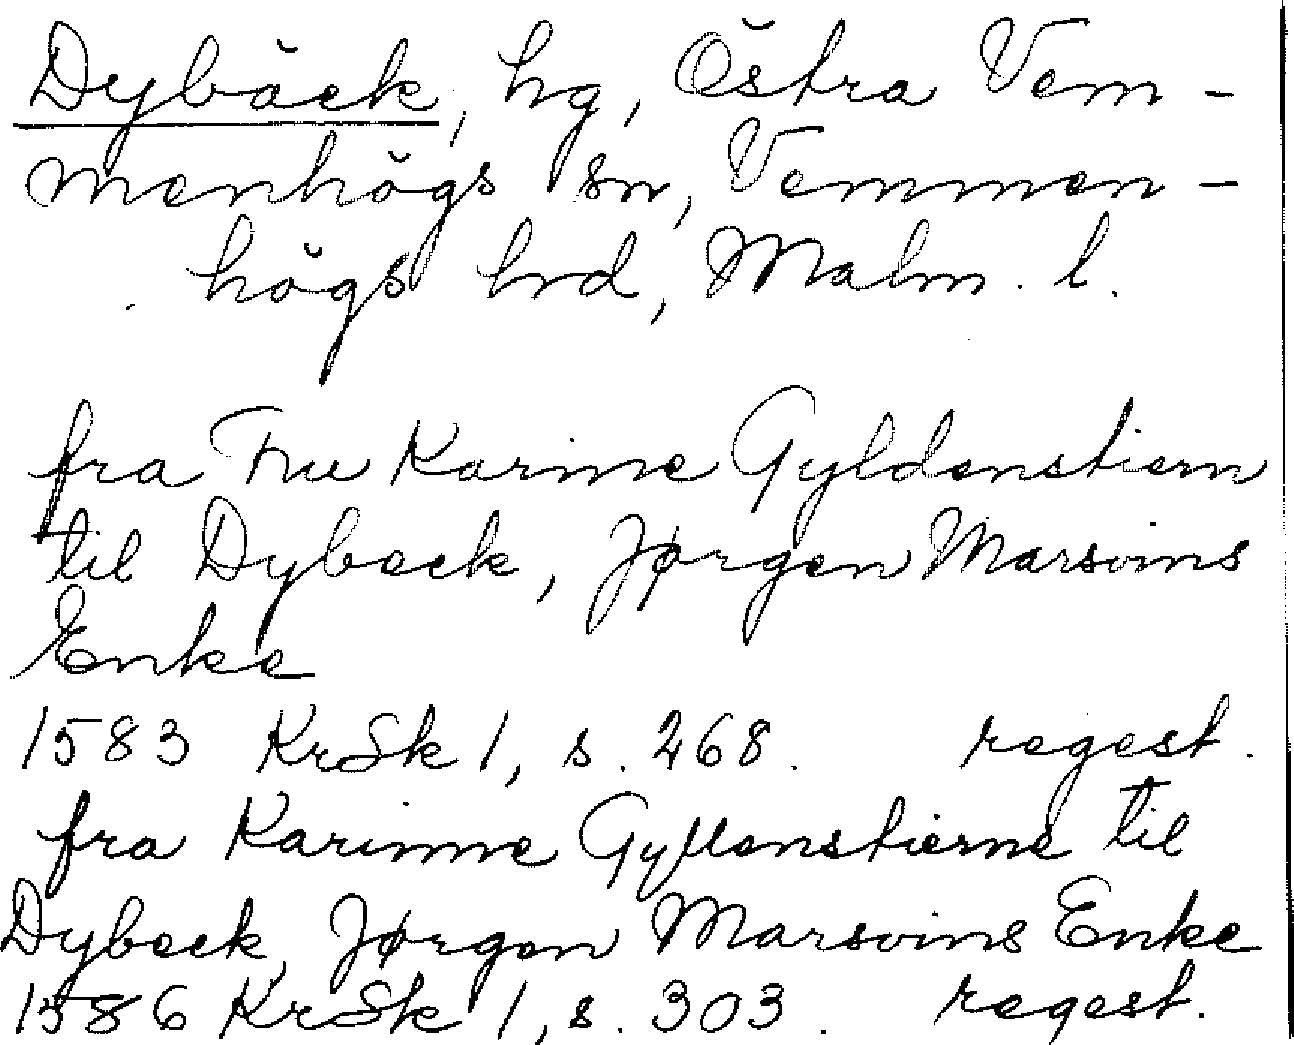 Dybäck, hg, Östra Vem-
menhögs sn, Vemmen-
högs hrd, Malm. l.
fra Fru Karine Gyldenstiern
til Dybeck, Jørgen Marsvins
Enke
1583 KrSk 1, s. 268. regest.
fra Karinne Gyllenstierne til
Dybeck, Jørgen Marsvins Enke
1586 KrSk 1, s. 303. regest.